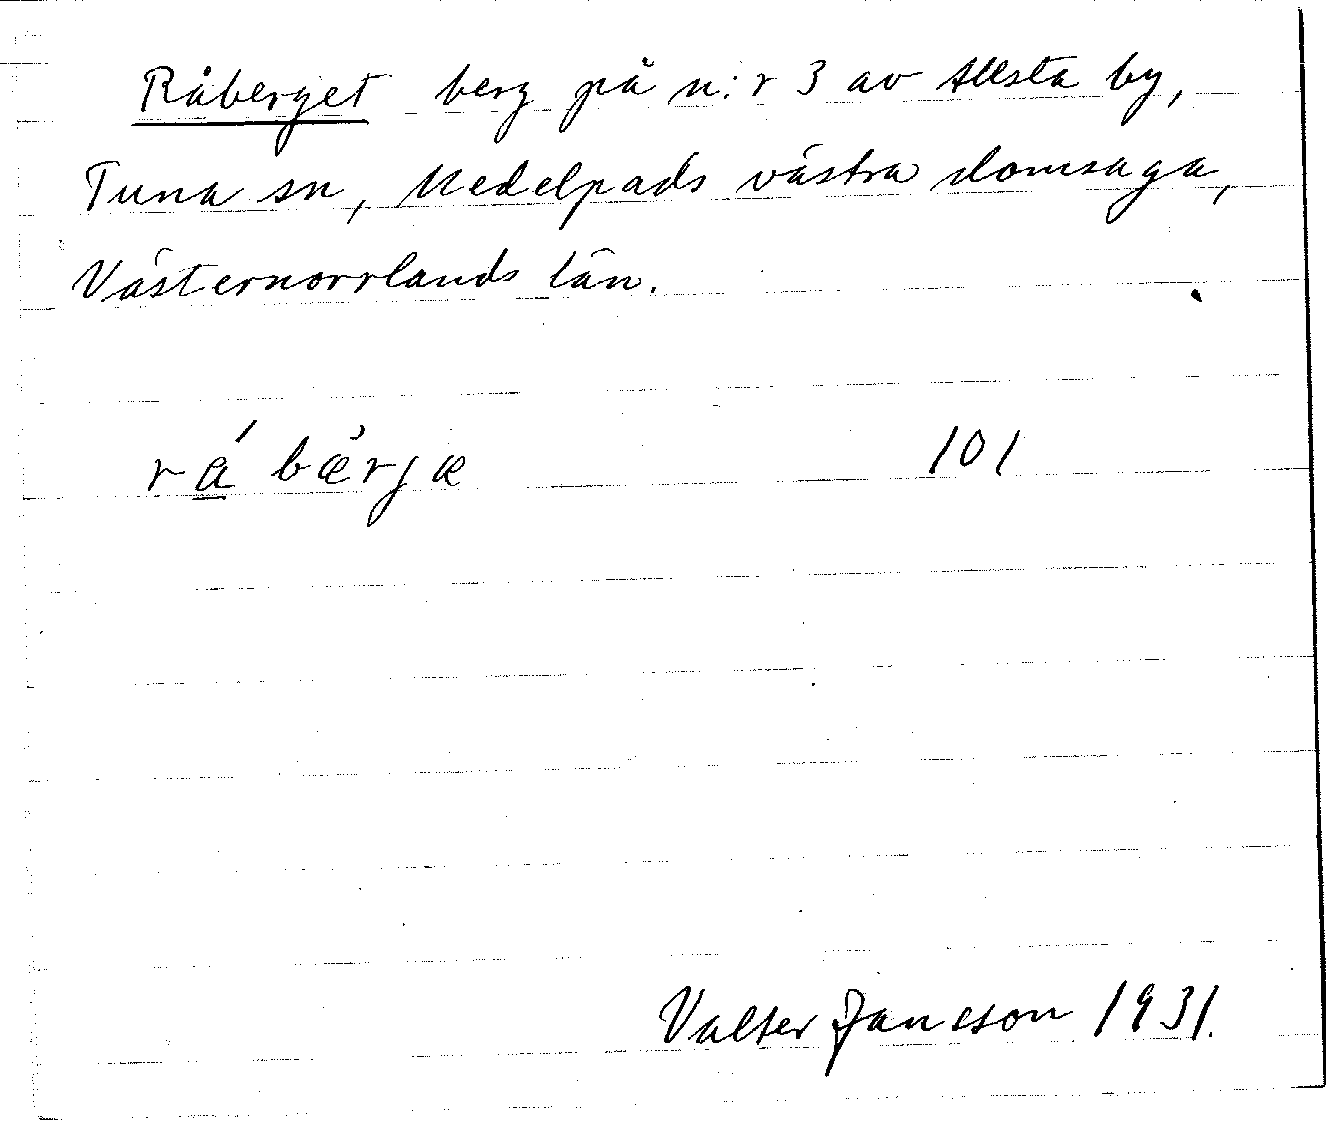 Råberget berg på n:r 3 av Allsta by,
Tuna sn, Medelpads västra domsaga,
Västernorrlands län.
rá bæ̀rjæ 101
Valter Jansson 1931.